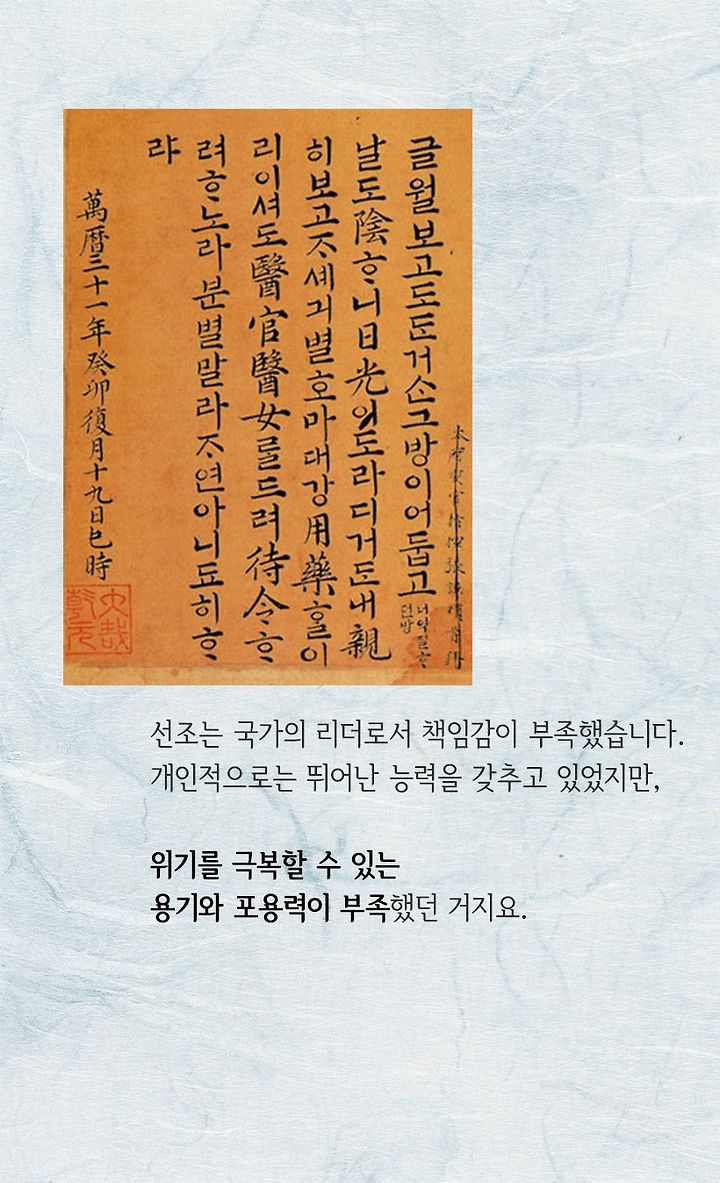 글월보고도ᄃᆞᆫ거ᄉᆞᆫ그방이어둡고
너역질ᄒᆞ
던방
날도陰ᄒᆞ니日光이도라디거ᄃᆞᆫ내親
히보고ᄌᆞ셰긔별호마대강用藥ᄒᆞᆯ이
리이셔도醫官醫女ᄅᆞᆯ드려待令ᄒᆞ
려ᄒᆞ노라분별말라ᄌᆞ연아니됴히ᄒᆞ
랴
萬曆三十一年癸卯復月十九日巳時
선조는 국가의 리더로서 책임감이 부족했습니다.
개인적으로는 뛰어난 능력을 갖추고 있었지만,
위기를 극복할 수 있는
용기와 포용력이 부족했던 거지요.